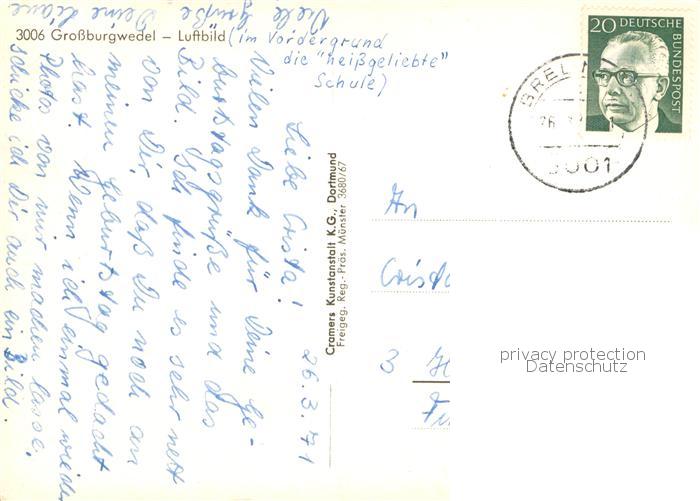 3006 Großburgwedel – Luftbild (im Vordergrund
die "heißgeliebte"
Schule)
26.3.71
Liebe Crista!
Vielen Dank für Deine Ge-
burtstagsgrüße und das
Bild. Ich finde es sehr nett
von Dir, daß Du noch an
meinen Geburtstag gedacht
hast. Wenn ich einmal wieder
Photos von mir machen lasse,
schicke ich Dir auch ein Bild.
Viele Grüße Deine
Cramers Kunstanstalt K.G., Dortmund
Freigeg. Reg.-Präs. Münster 3680/67
20 DEUTSCHE
BUNDESPOST
3001
An
Crista
3
privacy protection
Datenschutz